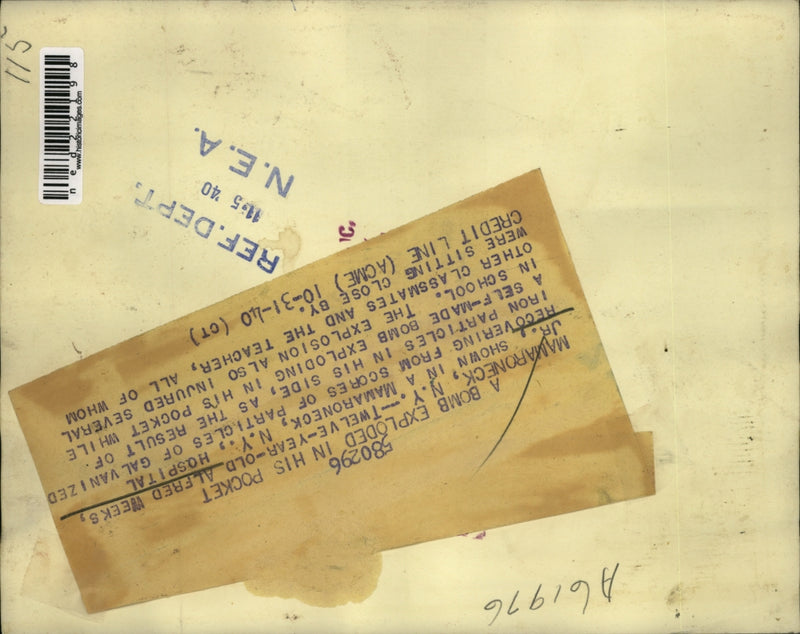 580296
A BOMB EXPLODED IN HIS POCKET
MAMARONECK, N.Y.--TWELVE-YEAR-OLD ALFRED WEEKS,
JR., SHOWN IN A MAMARONECK, N.Y., HOSPITAL
RECOVERING FROM SCORES OF PARTICLES OF GALVANIZED
IRON PARTICLES IN HIS SIDE, AS THE RESULT OF
A SELF-MADE BOMB EXPLODING IN HIS POCKET WHILE
IN SCHOOL. THE EXPLOSION ALSO INJURED SEVERAL
OTHER CLASSMATES AND THE TEACHER, ALL OF WHOM
WERE SITTING CLOSE BY.
CREDIT LINE (ACME) 10-31-40 (CT)
REF.DEPT.
11.5 '40
N.E.A.
A61976
115
www.historicimages.com
ned22198